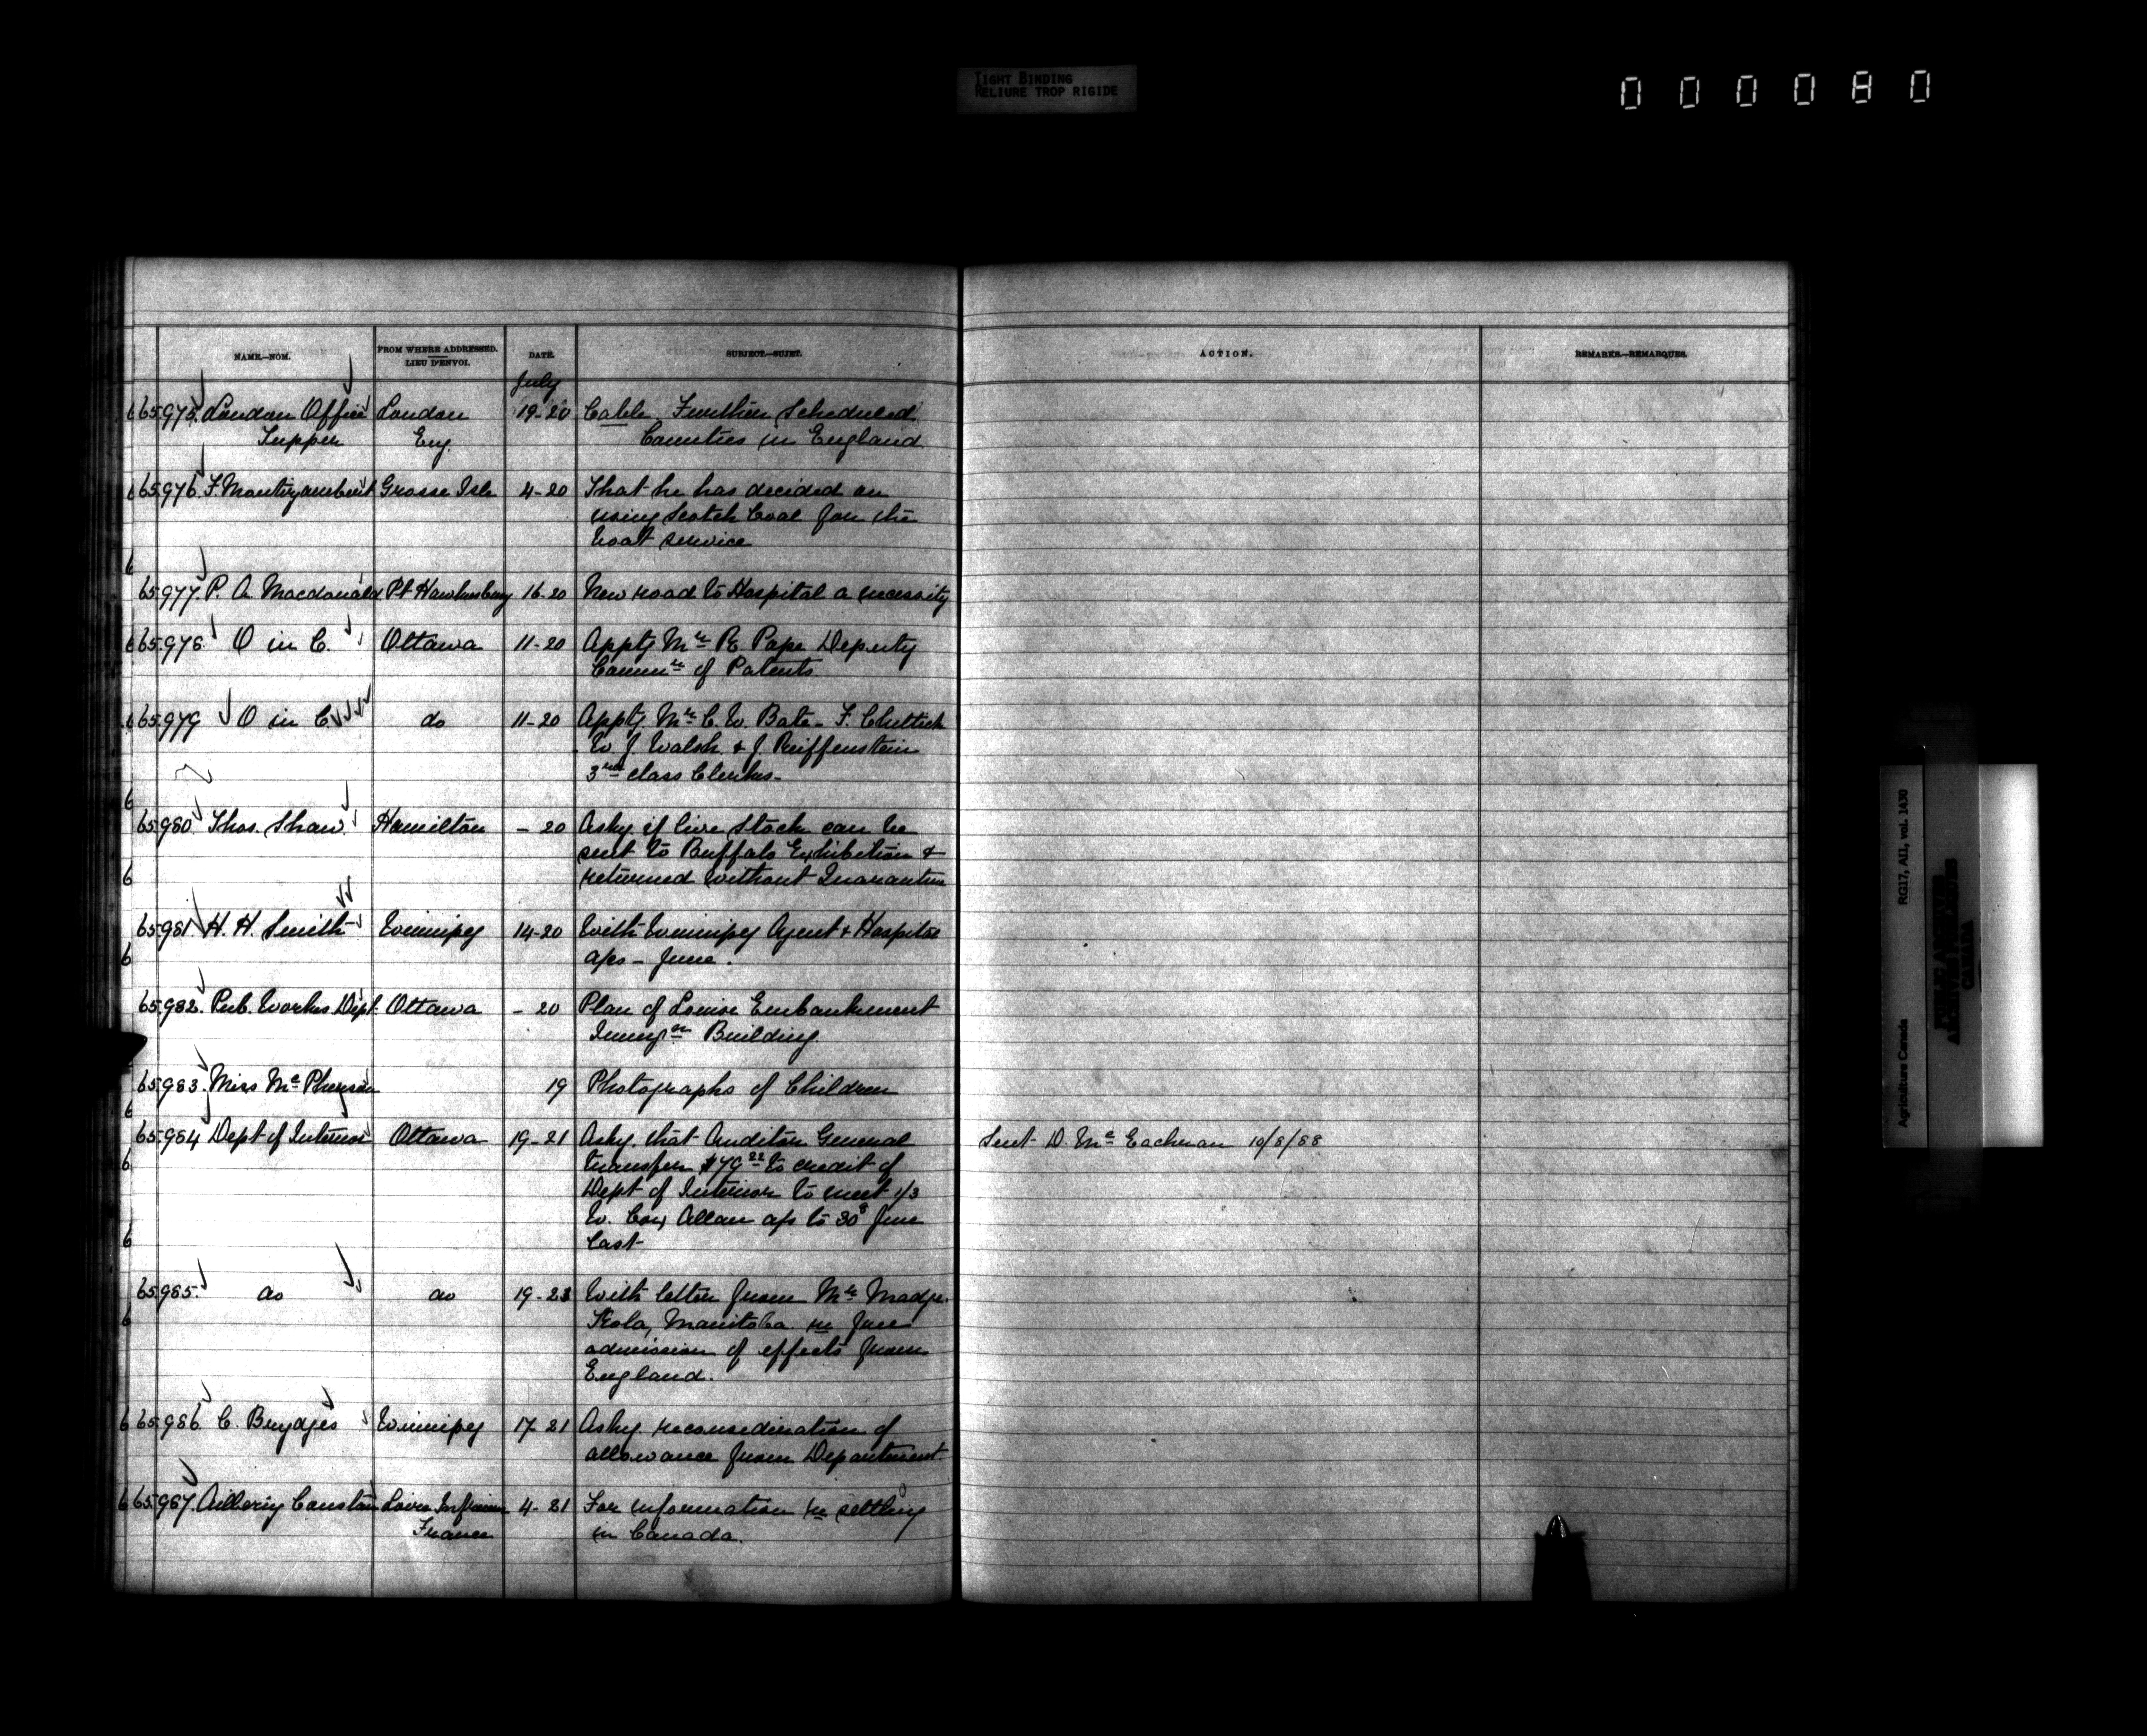 TIGHT BINDING
RELIURE TROP RIGIDE
000080
NAME.—NOM.
FROM WHERE ADDRESSED.
LIEU D'ENVOI.
DATE.
SUBJECT.—SUJET.
ACTION.
REMARKS.—REMARQUES.
July
65.975. London Office London 19-20 Cable Further Scheduled
Tupper Eng. Counties in England
65.976. F. Montizambert Grosse Isle 4-20 That he has decided on
using Scotch Coal for the
boat service
65.977. P. A. Macdonald Pt Hawkesbury 16-20 New road to Hospital a necessity
65.978. O in C. Ottawa 11-20 Apptg Mr R. Pope Deputy
Commr of Patents.
65.979 O in C. do 11-20 Apptg Mr C. W. Bate - F. Chittick
W. J. Walsh & J. Reiffenstein
3rd class Clerks-
65.980 Thos. Shaw. Hamilton - 20 Askg. if live Stock can be
sent to Buffalo Exhibition &
returned without Quarantine
65.981 H. H. Smith Winnipeg 14-20 With Winnipeg Agent & Hospital
a/cs - June.
65.982. Pub. Works Dept. Ottawa - 20 Plan of Louise Embankment
Immign Building.
65.983. Miss Mc Pherson 19 Photographs of Children
65.984 Dept of Interior Ottawa 19-21 Askg. that Auditor General
Sent D. Mc Eachran 10/8/88
transfer $79 22 to credit of
Dept of Interior to meet 1/3
W. Cox Allan a/c to 30th June
last-
65.985. do do 19-23 With letter from Mr Madge.
Kola, Manitoba re free
admission of effects from
England.
65.986. C. Brydges Winnipeg 17-21 Askg. reconsideration of
allowance from Department.
65.987. Constan Loire Inferieure 4-21 For information re settling
France in Canada.
Agriculture Canada RG17, AII, vol. 1430
PUBLIC ARCHIVES
ARCHIVES PUBLIQUES
CANADA